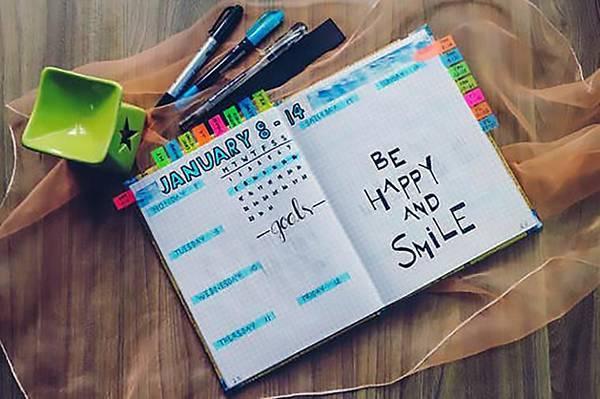 JANUARY 8-14
M T W T F S S
MONDAY 8
TUESDAY 9
WEDNESDAY 10
THURSDAY 11
goals
FRIDAY 12
SATURDAY 13
SUNDAY
BE
HAPPY
AND
SMiLE